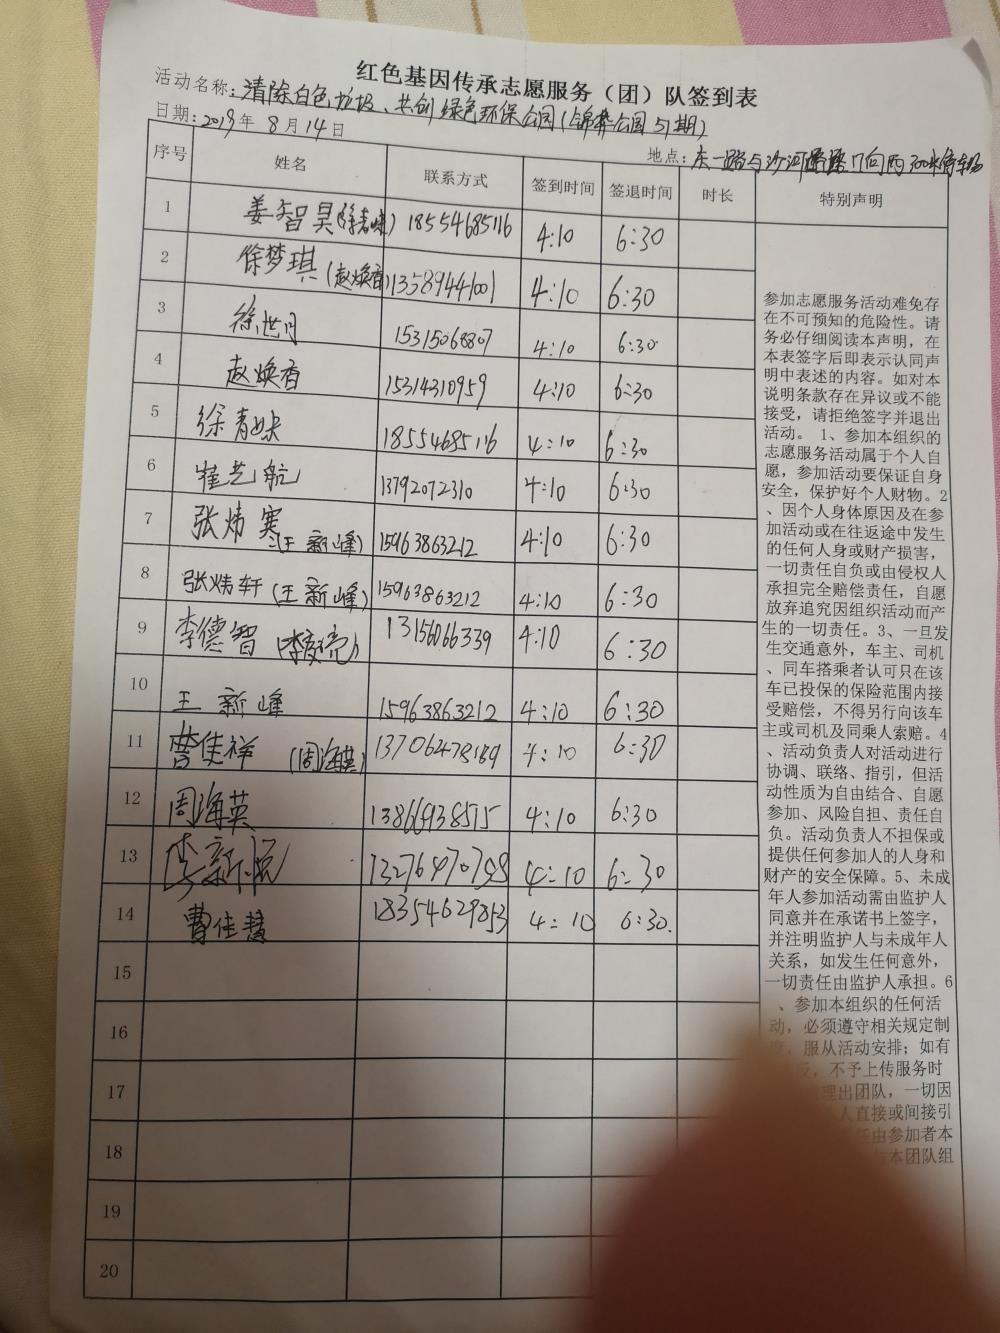 红色基因传承志愿服务（团）队签到表
活动名称：清除白色垃圾、共创绿色环保公园（锦华公园51期）
日期：2019年8月14日
地点：东一路与沙河路 门向西300米停车场
序号 姓名 联系方式 签到时间 签退时间 时长 特别声明
1 姜智昊 18554685116 4:10 6:30
2 徐梦琪（赵焕香） 13589441001 4:10 6:30
3 徐世月 15315068807 4:10 6:30
4 赵焕香 15314310959 4:10 6:30
5 徐青 18554685116 4:10 6:30
6 崔艺航 13792072310 4:10 6:30
7 张炜寒（王新峰） 15963863212 4:10 6:30
8 张炜轩（王新峰） 15963863212 4:10 6:30
9 李德智 13156066339 4:10 6:30
10 王新峰 15963863212 4:10 6:30
11 曹佳祥（周海英） 13706478189 4:10 6:30
12 周海英 13866938515 4:10 6:30
13 李新 13276470798 4:10 6:30
14 曹佳慧 18354629853 4:10 6:30
15
16
17
18
19
20
参加志愿服务活动难免存
在不可预知的危险性。请
务必仔细阅读本声明，在
本表签字后即表示认同声
明中表述的内容。如对本
说明条款存在异议或不能
接受，请拒绝签字并退出
活动。 1、参加本组织的
志愿服务活动属于个人自
愿，参加活动要保证自身
安全，保护好个人财物。2
、因个人身体原因及在参
加活动或在往返途中发生
的任何人身或财产损害，
一切责任自负或由侵权人
承担完全赔偿责任，自愿
放弃追究因组织活动而产
生的一切责任。3、一旦发
生交通意外，车主、司机
、同车搭乘者认可只在该
车已投保的保险范围内接
受赔偿，不得另行向该车
主或司机及同乘人索赔。4
、活动负责人对活动进行
协调、联络、指引，但活
动性质为自由结合、自愿
参加、风险自担、责任自
负。活动负责人不担保或
提供任何参加人的人身和
财产的安全保障。5、未成
年人参加活动需由监护人
同意并在承诺书上签字，
并注明监护人与未成年人
关系，如发生任何意外，
一切责任由监护人承担。6
、参加本组织的任何活
动，必须遵守相关规定制
度，服从活动安排；如有
反，不予上传服务时
理出团队，一切因
人直接或间接引
任由参加者本
与本团队组